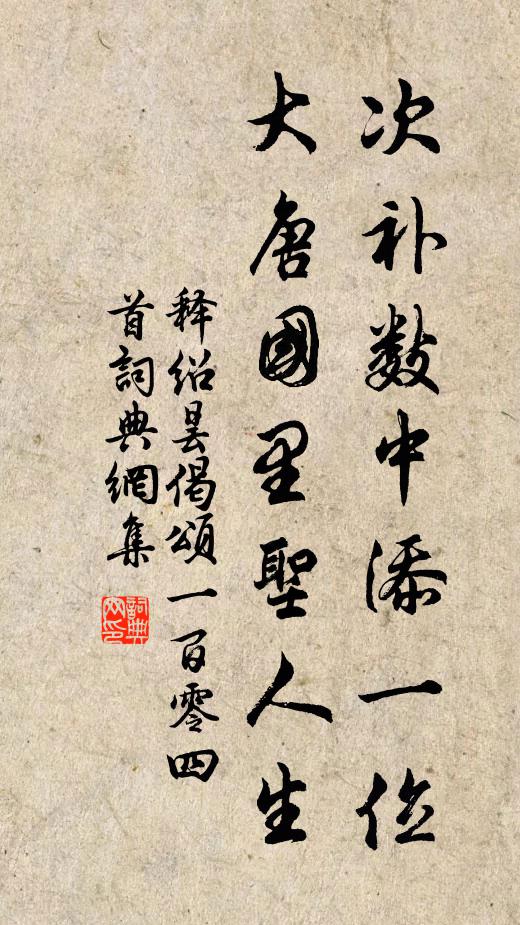 次补数中添一位
大唐國里聖人生
释绍昙偈頌一百零四
首詞典網集
詞典
网印